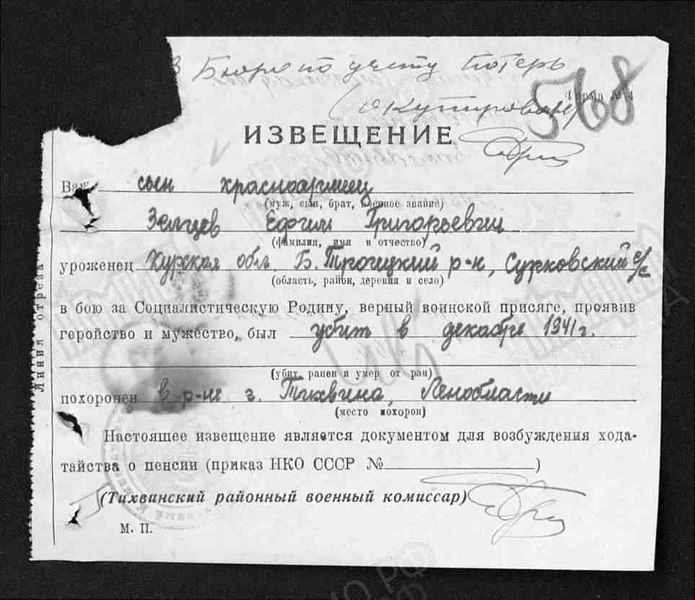 В Бюро по учету потерь
(окупирован)
568
Форма № 4
ИЗВЕЩЕНИЕ
Ваш сын красноармеец
(муж, сын, брат, военное звание)
Зелцев Ефим Григорьевич
(фамилия, имя и отчество)
уроженец Курская обл. Б. Троицкий р-н, Сурковский с/с
(область, район, деревня и село)
в бою за Социалистическую Родину, верный воинской присяге, проявив
геройство и мужество, был убит в декабре 1941 г.
(убит, ранен и умер от ран)
похоронен в р-не г. Тихвина, Ленобласти
(место похорон)
Настоящее извещение является документом для возбуждения хода-
тайства о пенсии (приказ НКО СССР №)
(Тихвинский районный военный комиссар)
М. П.
Линия отреза